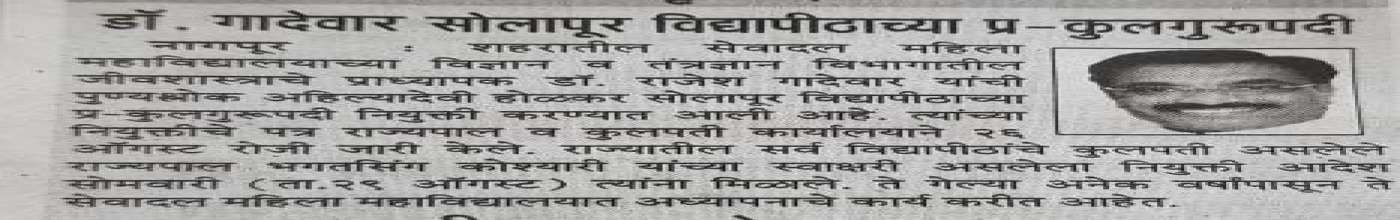 डॉ. गादेवार सोलापूर विद्यापीठाच्या प्र-कुलगुरूपदी
नागपूर : शहरातील सेवादल महिला
महाविद्यालयाच्या विज्ञान व तंत्रज्ञान विभागातील
जीवशास्त्राचे प्राध्यापक डॉ. राजेश गादेवार यांची
पुण्यश्लोक अहिल्यादेवी होळकर सोलापूर विद्यापीठाच्या
प्र-कुलगुरूपदी नियुक्ती करण्यात आली आहे. त्यांच्या
नियुक्तीचे पत्र राज्यपाल व कुलपती कार्यालयाने २६
ऑगस्ट रोजी जारी केले. राज्यातील सर्व विद्यापीठांचे कुलपती असलेले
राज्यपाल भगतसिंग कोश्यारी यांच्या स्वाक्षरी असलेला नियुक्ती आदेश
सोमवारी (ता.२९ ऑगस्ट) त्यांना मिळाले. ते गेल्या अनेक वर्षांपासून ते
सेवादल महिला महाविद्यालयात अध्यापनाचे कार्य करीत आहेत.